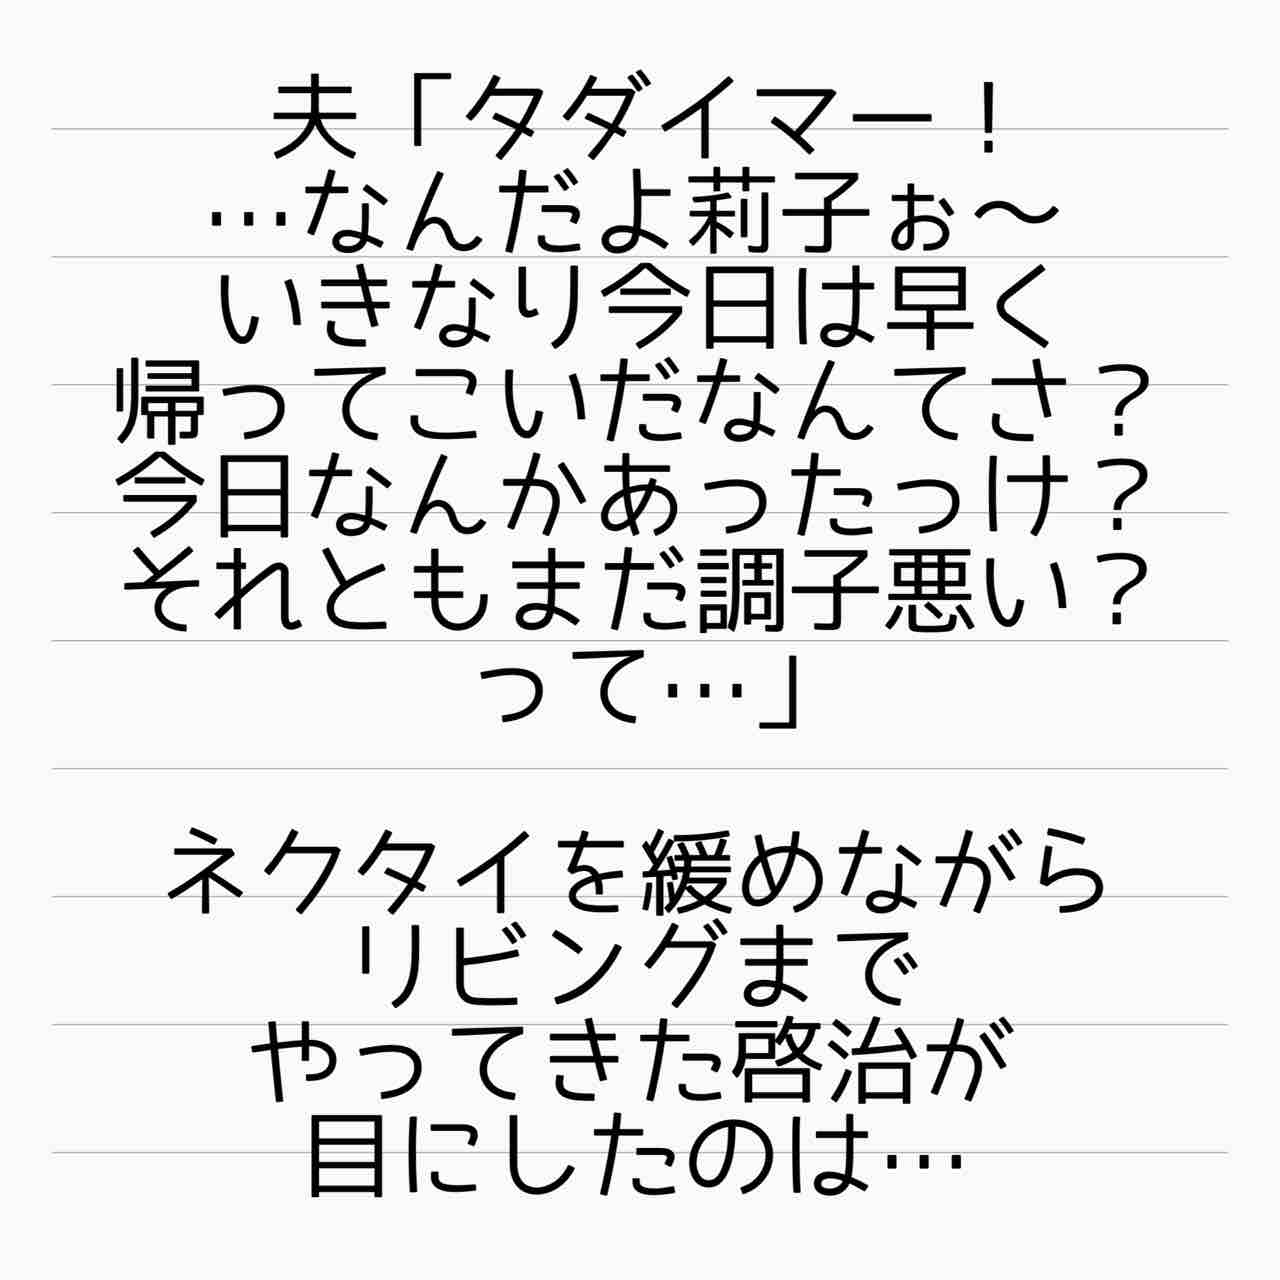 夫「タダイマー！
…なんだよ莉子ぉ〜
いきなり今日は早く
帰ってこいだなんてさ？
今日なんかあったっけ？
それともまだ調子悪い？
って…」
ネクタイを緩めながら
リビングまで
やってきた啓治が
目にしたのは…